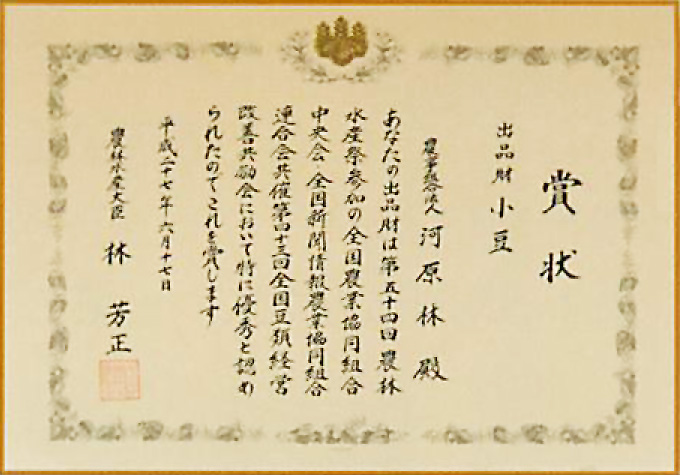 賞状
出品財 小豆
農事組合法人 河原林 殿
あなたの出品財は第五十四回農林
水産祭参加の全国農業協同組合
中央会・全国新聞情報農業協同組合
連合会共催第四十三回全国豆類経営
改善共励会において特に優秀と認め
られたのでこれを賞します
平成二十七年六月十七日
農林水産大臣 林 芳正